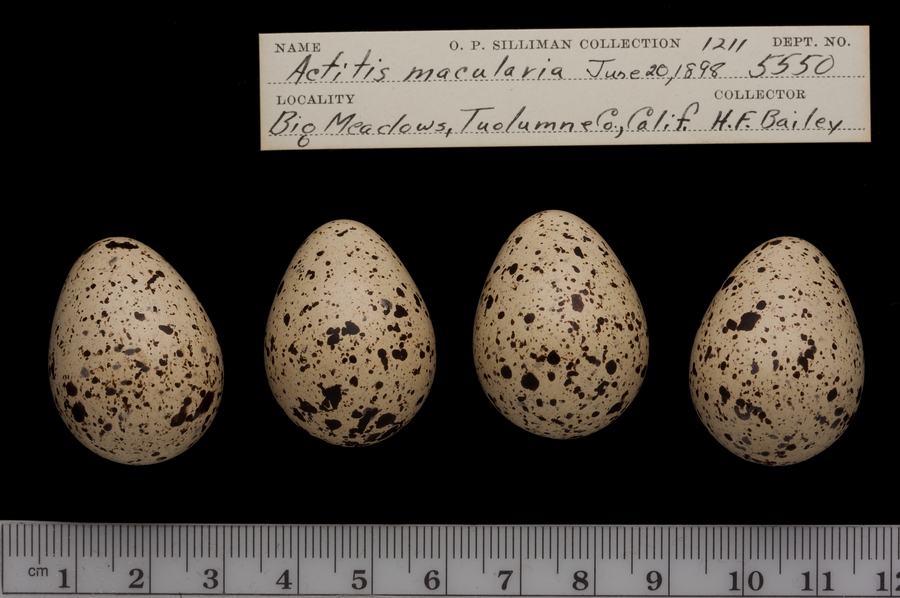 NAME O. P. SILLIMAN COLLECTION 1211 DEPT. NO.
Actitis macularia June 20, 1898 5550
LOCALITY COLLECTOR
Big Meadows, Tuolumne Co., Calif. H. F. Bailey
cm 1 2 3 4 5 6 7 8 9 10 11 12